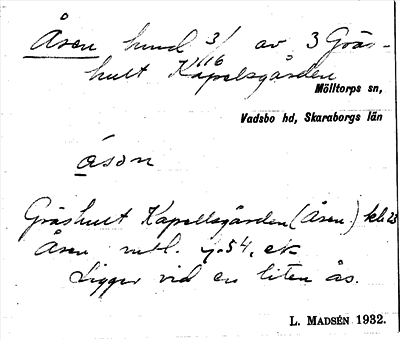 Åsen hmd 3/16 av 3 Gräs-
hult Kapellsgården
Mölltorps sn,
Vadsbo hd, Skaraborgs län
åson
Gräshult Kapellsgården (Åsen) kb 23
Åsen mtl. j. 54. ek
Ligger vid en liten ås.
L. MADSÉN 1932.